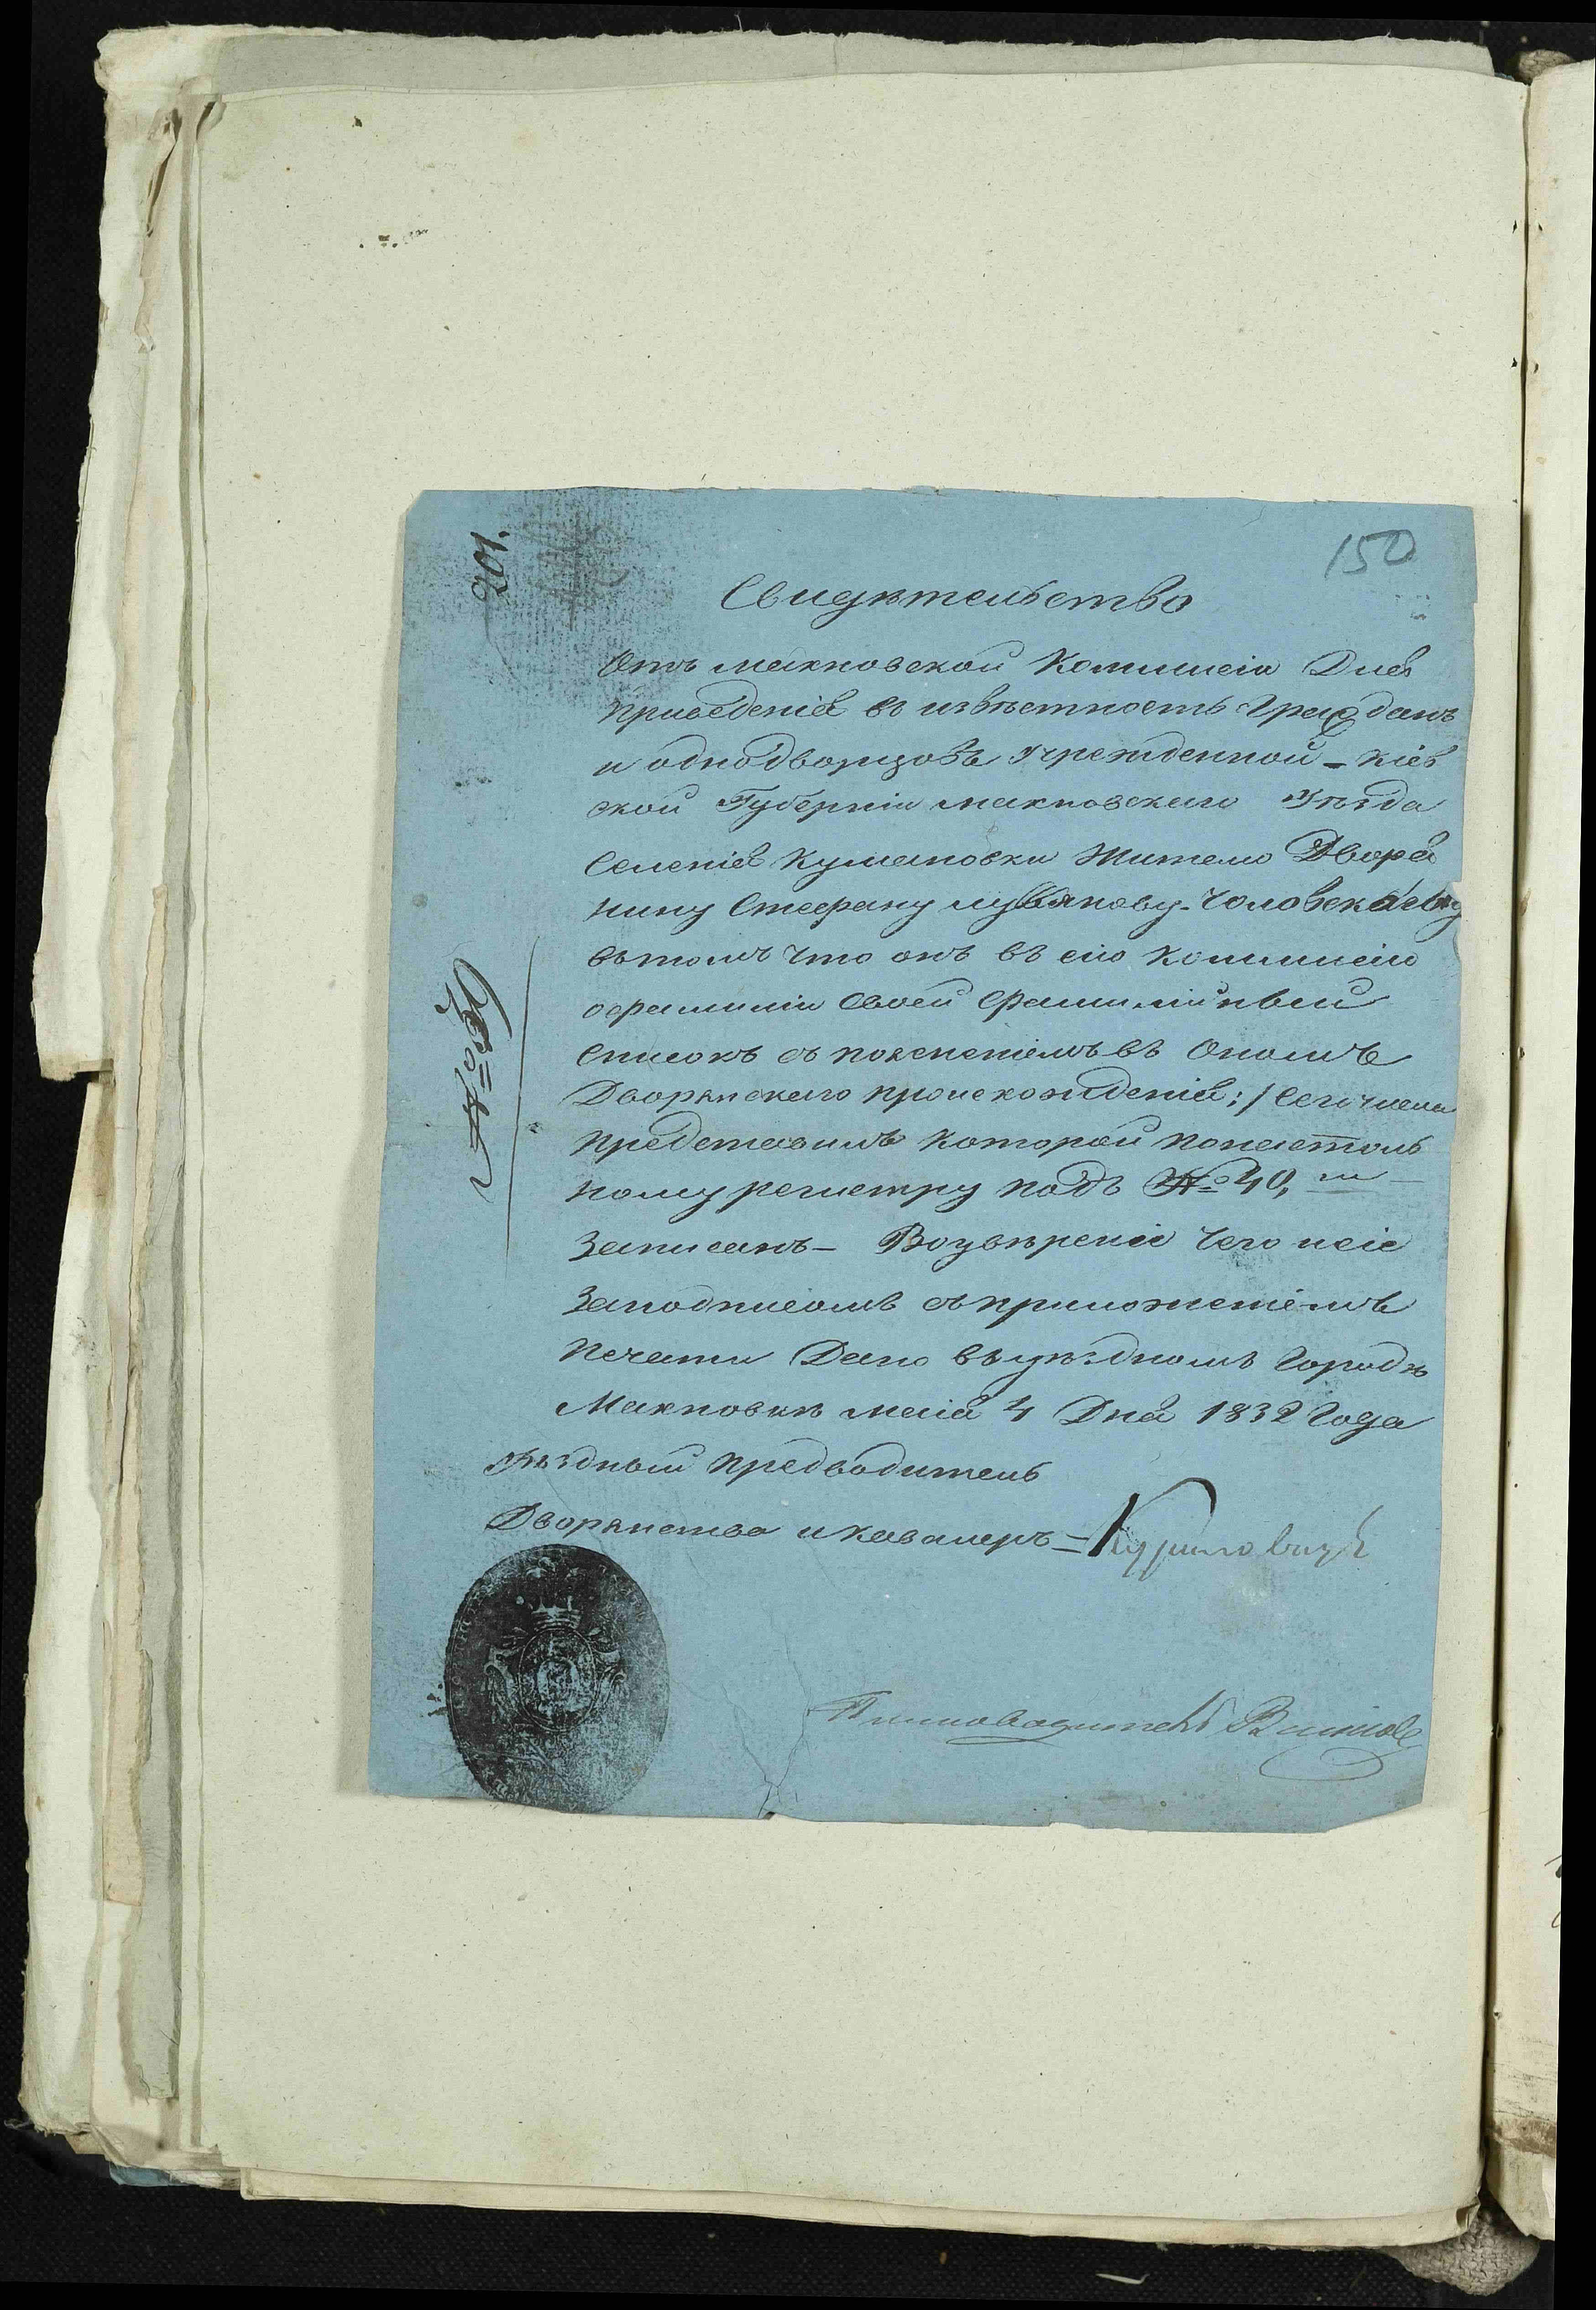 201.
150
Свидѣтельство
Отъ махновской Коммисіи Для
приведенія въ извѣстность Граждан
и однодворцовъ Учрежденной - Кіев
ской Губерніи махновскаго Уѣзда
Селенія Кумановки Жителю Дворя
нину Стефану
въ томъ что онъ въ сію Коммисію
о фамиліи Своей Фамилійный
Списокъ съ пояснениемъ въ ономъ
Дворянскаго происхожденія; / Сего числа
представилъ которой по
ному регистру подъ № 40,
Записанъ - Воувѣреніе Чего и сіе
Заподписомъ съ приложениемъ
Печати Дано въ уѣздномъ Городѣ
Махновкѣ маія 4 Дня 1832 Года
Уѣздный предводитель
Дворянства и Кавалеръ =
Письмоводитель